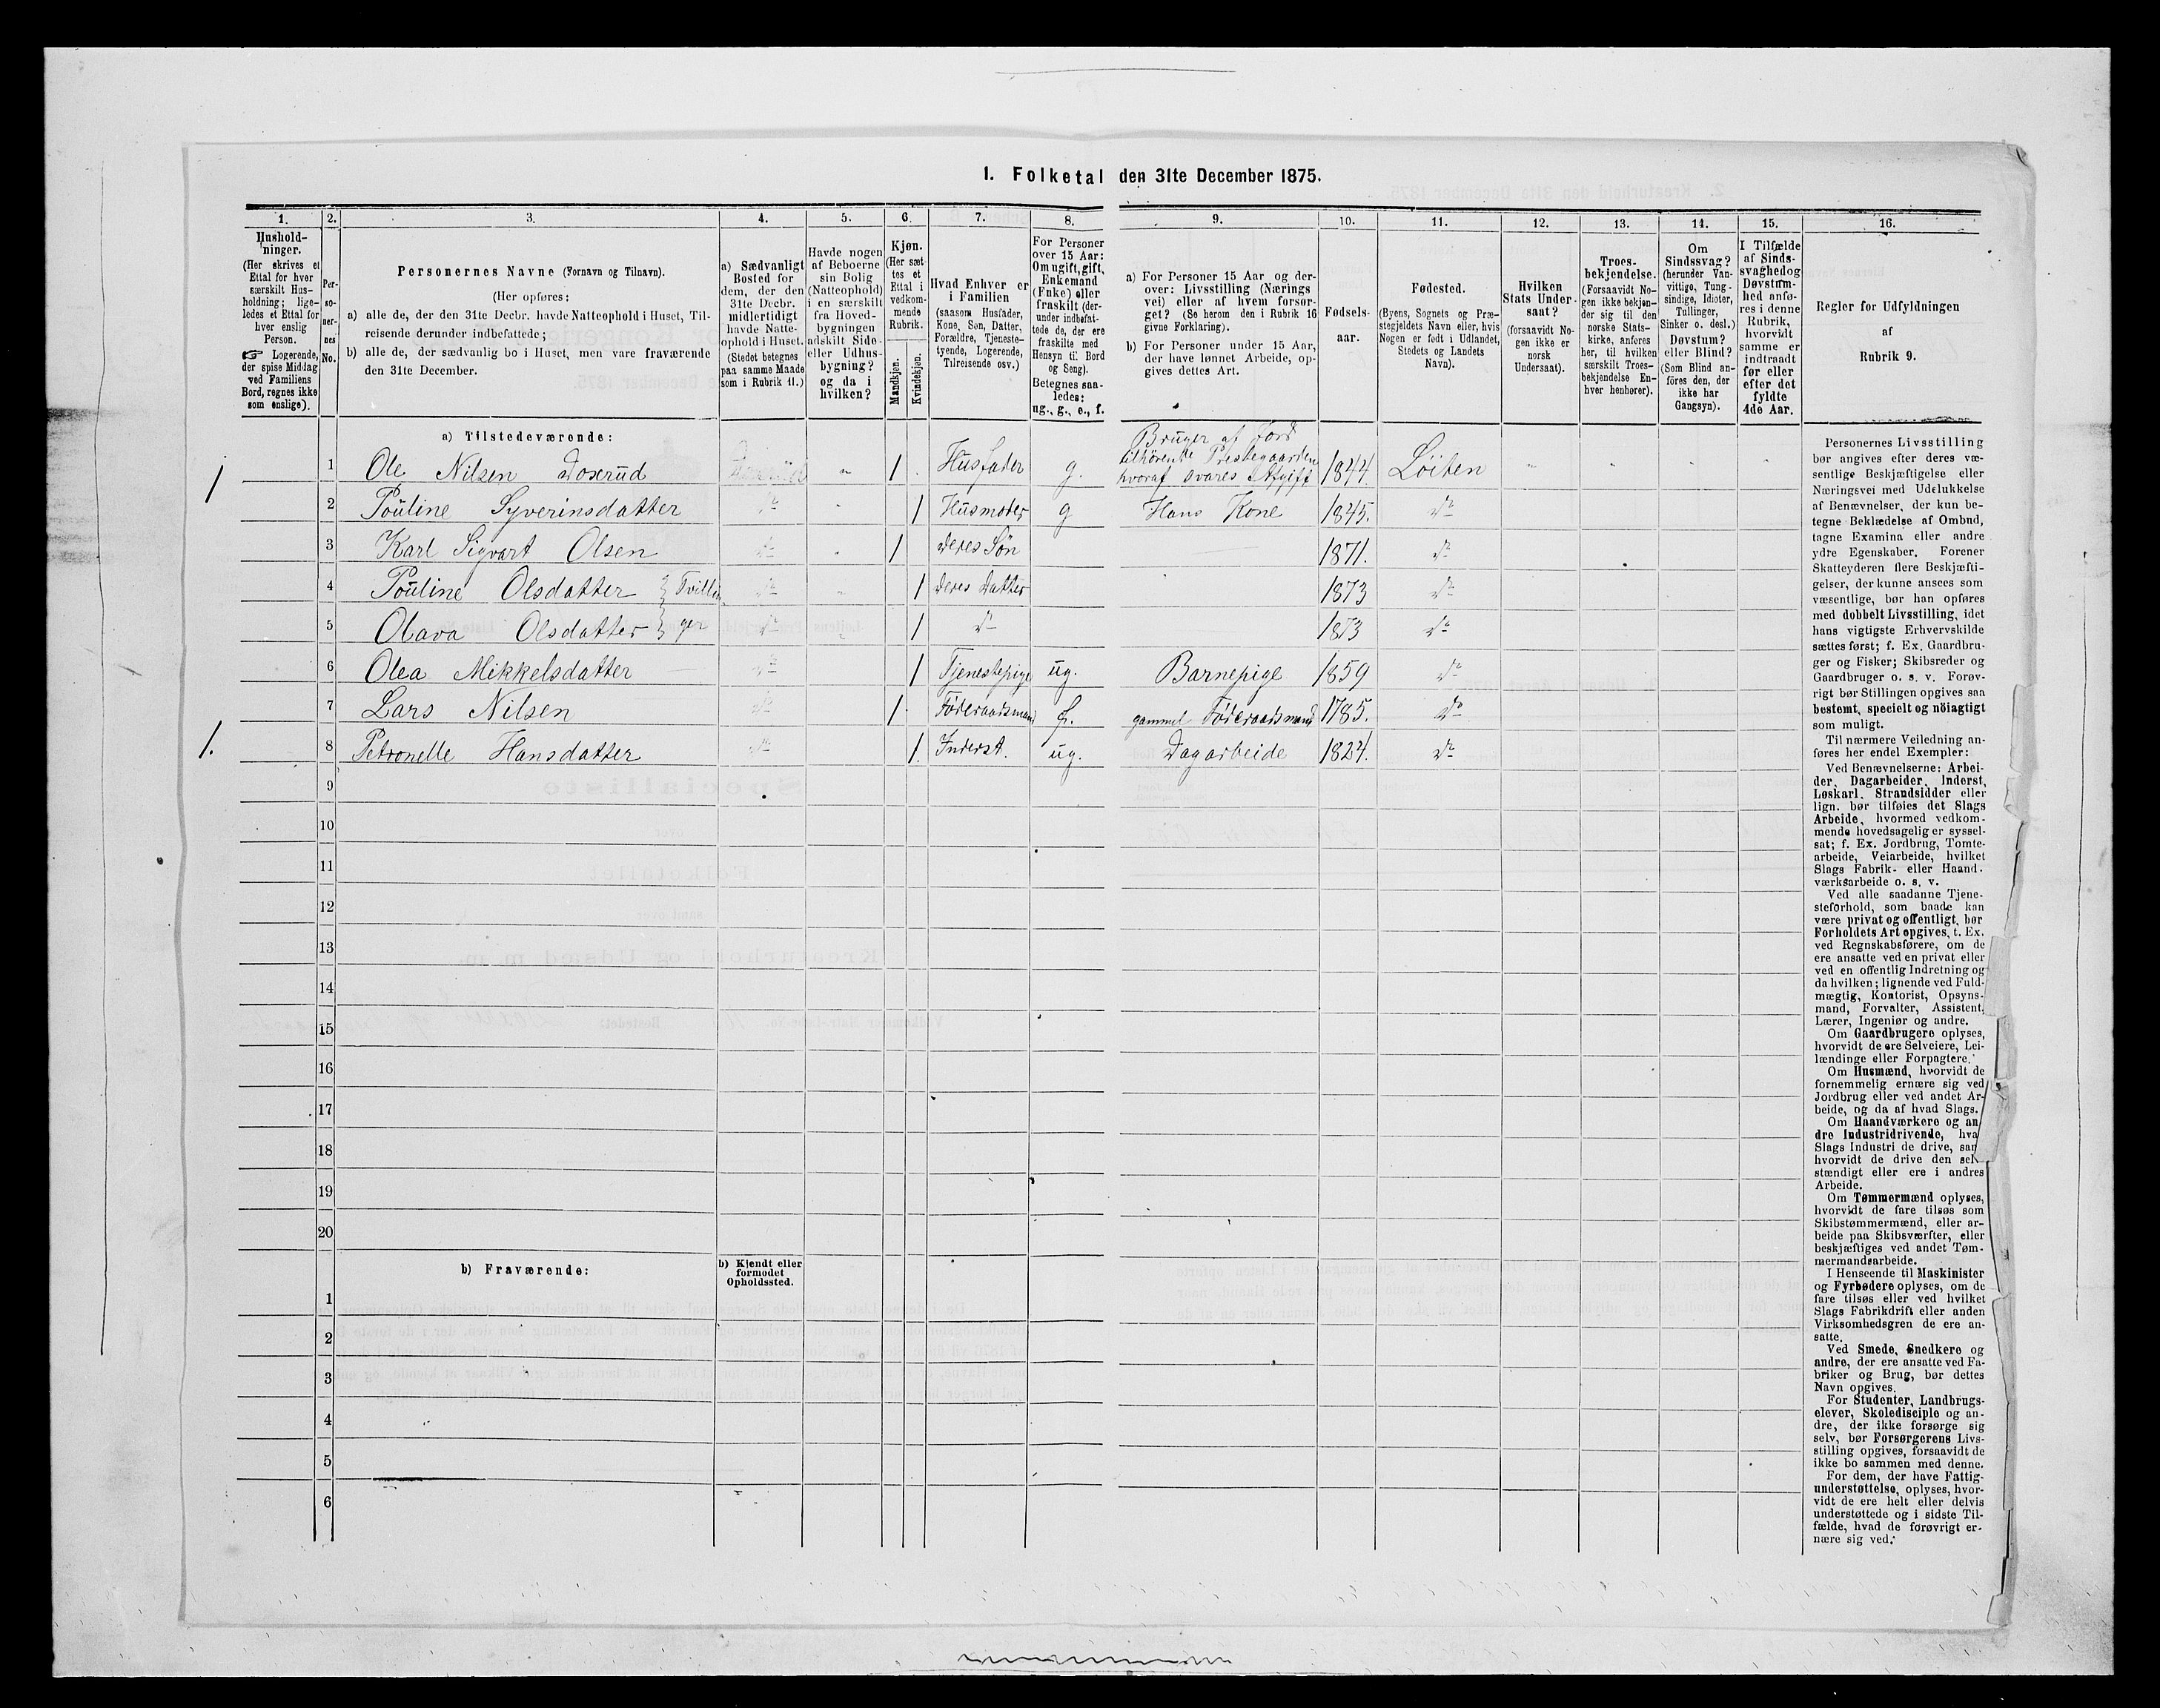 1. Folketal den 31te December 1875.
1. 2. 3. 4. 5. 6. 7. 8. 9. 10. 11. 12. 13. 14. 15. 16.
Hushold-
ninger.
(Her skrives et
Ettal for hver
særskilt Hus-
holdning; lige-
ledes et Ettal for
hver enslig
Person.
☞ Logerende,
der spise Middag
ved Familiens
Bord, regnes ikke
som enslige).
Per-
so-
ner-
nes
No.
Personernes Navne (Fornavn og Tilnavn).
(Her opføres:
a) alle de, der den 31te Decbr. havde Natteophold i Huset, Til-
reisende derunder indbefattede;
b) alle de, der sædvanlig bo i Huset, men vare fraværende
den 31te December.
a) Sædvanligt
Bosted for
dem, der den
31te Decbr.
midlertidigt
havde Natte-
ophold i Huset.
(Stedet betegnes
paa samme Maade
som i Rubrik 11.)
Havde nogen
af Beboerne
sin Bolig
(Natteophold)
i en særskilt
fra Hoved-
bygningen
adskilt Side-
eller Udhus-
bygning?
og da i
hvilken?
Kjøn.
(Her sæt-
tes et
Ettal i
vedkom-
mende
Rubrik.
Mandkjøn.
Kvindekjøn.
Hvad Enhver er
i Familien
(saasom Husfader,
Kone, Søn, Datter,
Forældre, Tjeneste-
tyende, Logerende,
Tilreisende osv.)
For Personer
over 15 Aar:
Om ugift, gift,
Enkemand
(Enke) eller
fraskilt (der-
under indbefat-
tede de, der ere
fraskilte med
Hensyn til Bord
og Seng).
Betegnes saa-
ledes:
ug., g., e., f.
a) For Personer 15 Aar og der-
over: Livsstilling (Nærings
vei) eller af hvem forsør-
get? (Se herom den i Rubrik 16
givne Forklaring).
b) For Personer under 15 Aar,
der have lønnet Arbeide, op-
gives dettes Art.
Fødsels-
aar.
Fødested.
(Byens, Sognets og Præ-
stegjeldets Navn eller, hvis
Nogen er født i Udlandet,
Stedets og Landets
Navn).
Hvilken
Stats Under-
saat?
(forsaavidt No-
gen ikke er
norsk
Undersaat).
Troes-
bekjendelse.
(Forsaavidt No-
gen ikke bekjen-
der sig til den
norske Stats-
kirke, anføres
her, til hvilken
særskilt Troes-
bekjendelse En-
hver henhører).
Om
Sindssvag?
(herunder Van-
vittige, Tung-
sindige, Idioter,
Tullinger,
Sinker o. desl.)
Døvstum?
eller Blind?
(Som Blind an-
føres den, der
ikke har
Gangsyn).
I Tilfælde
af Sinds-
svaghed og
Døvstum-
hed anfø-
res i denne
Rubrik,
hvorvidt
samme er
indtraadt
før eller
efter det
fyldte
4de Aar.
Regler for Udfyldningen
af
Rubrik 9.
a) Tilstedeværende:
Bruger af Jord
tilhörende Prestegaarden
1 1 Ole Nilsen Doserud " 1 Husfader g. hvoraf svares Afgift 1844. Löiten " " " "
2 Pouline Syverinsdatter do " 1 Husmoder g Hans Kone 1845. do
3 Karl Sigvart Olsen do " 1 deres Søn 1871. do
4 Pouline Olsdatter } Tvillin do " 1 deres Datter 1873 do
5 Olava Olsdatter } ger do " 1 do 1873 do
6 Olea Mikkelsdatter do 1 Tjenestepige ug. Barnepige 1859 do
7 Lars Nilsen do 1 Föderaadsmand gammel Föderaadsmand 1785. do
1. 8 Petronelle Hansdatter do 1. Inderst. ug. Dagarbeide 1824. do
9
10
11
12
13
14
15
16
17
18
19
20
b) Fraværende:
b) Kjendt eller
formodet
Opholdssted.
1
2
3
4
5
6
Personernes Livsstilling
bør angives efter deres væ-
sentlige Beskjæftigelse eller
Næringsvei med Udelukkelse
af Benævnelser, der kun be-
tegne Beklædelse af Ombud,
tagne Examina eller andre
ydre Egenskaber. Forener
Skatteyderen flere Beskjæfti-
gelser, der kunne ansees som
væsentlige, bør han opføres
med dobbelt Livsstilling, idet
hans vigtigste Erhvervskilde
sættes først; f. Ex. Gaardbru-
ger og Fisker; Skibsreder og
Gaardbruger o. s. v. Forøv-
rigt bør Stillingen opgives saa
bestemt, specielt og nöiagtigt
som muligt.
Til nærmere Veiledning an-
føres her endel Exempler:
Ved Benævnelserne: Arbei-
der, Dagarbeider, Inderst,
Løskarl, Strandsidder eller
lign. bør tilføies det Slags
Arbeide, hvormed vedkom-
mende hovedsagelig er syssel-
sat; f. Ex. Jordbrug, Tomte-
arbeide, Veiarbeide, hvilket
Slags Fabrik- eller Haand-
værksarbeide o. s. v.
Ved alle saadanne Tjene-
steforhold, som baade kan
være privat og offentligt, bør
Forholdets Art opgives, t. Ex.
ved Regnskabsførere, om de
ere ansatte ved en privat eller
ved en offentlig Indretning og
da hvilken; lignende ved Fuld-
mægtig, Kontorist, Opsyns-
mand, Forvalter, Assistent,
Lærer, Ingeniør og andre.
Om Gaardbrugere oplyses,
hvorvidt de ere Selveiere, Lei-
lændinge eller Forpagtere.
Om Husmænd, hvorvidt de
fornemmelig ernære sig ved
Jordbrug eller ved andet Ar-
beide, og da af hvad Slags.
Om Haandværkere og an-
dre Industridrivende, hva
Slags Industri de drive, sam
hvorvidt de drive den selv
stændigt eller ere i andres
Arbeide.
Om Tømmermænd oplyses,
hvorvidt de fare tilsøs som
Skibstømmermænd, eller ar-
beide paa Skibsværfter, eller
beskjæftiges ved andet Tøm-
mermandsarbeide.
I Henseende til Maskinister
og Fyrbødere oplyses, om de
fare tilsøs eller ved hvilket
Slags Fabrikdrift eller anden
Virksomhedsgren de ere an-
satte.
Ved Smede, Snedkere og
andre, der ere ansatte ved Fa-
briker og Brug, bør dettes
Navn opgives.
For Studenter, Landbrugs-
elever, Skoledisciple og an-
dre, der ikke forsørge sig
selv, bør Forsørgerens Livs-
stilling opgives, forsaavidt de
ikke bo sammen med denne.
For dem, der have Fattig-
understøttelse, oplyses, hvor-
vidt de ere helt eller delvis
understøttede og i sidste Til-
fælde, hvad de forøvrigt er-
nære sig ved.